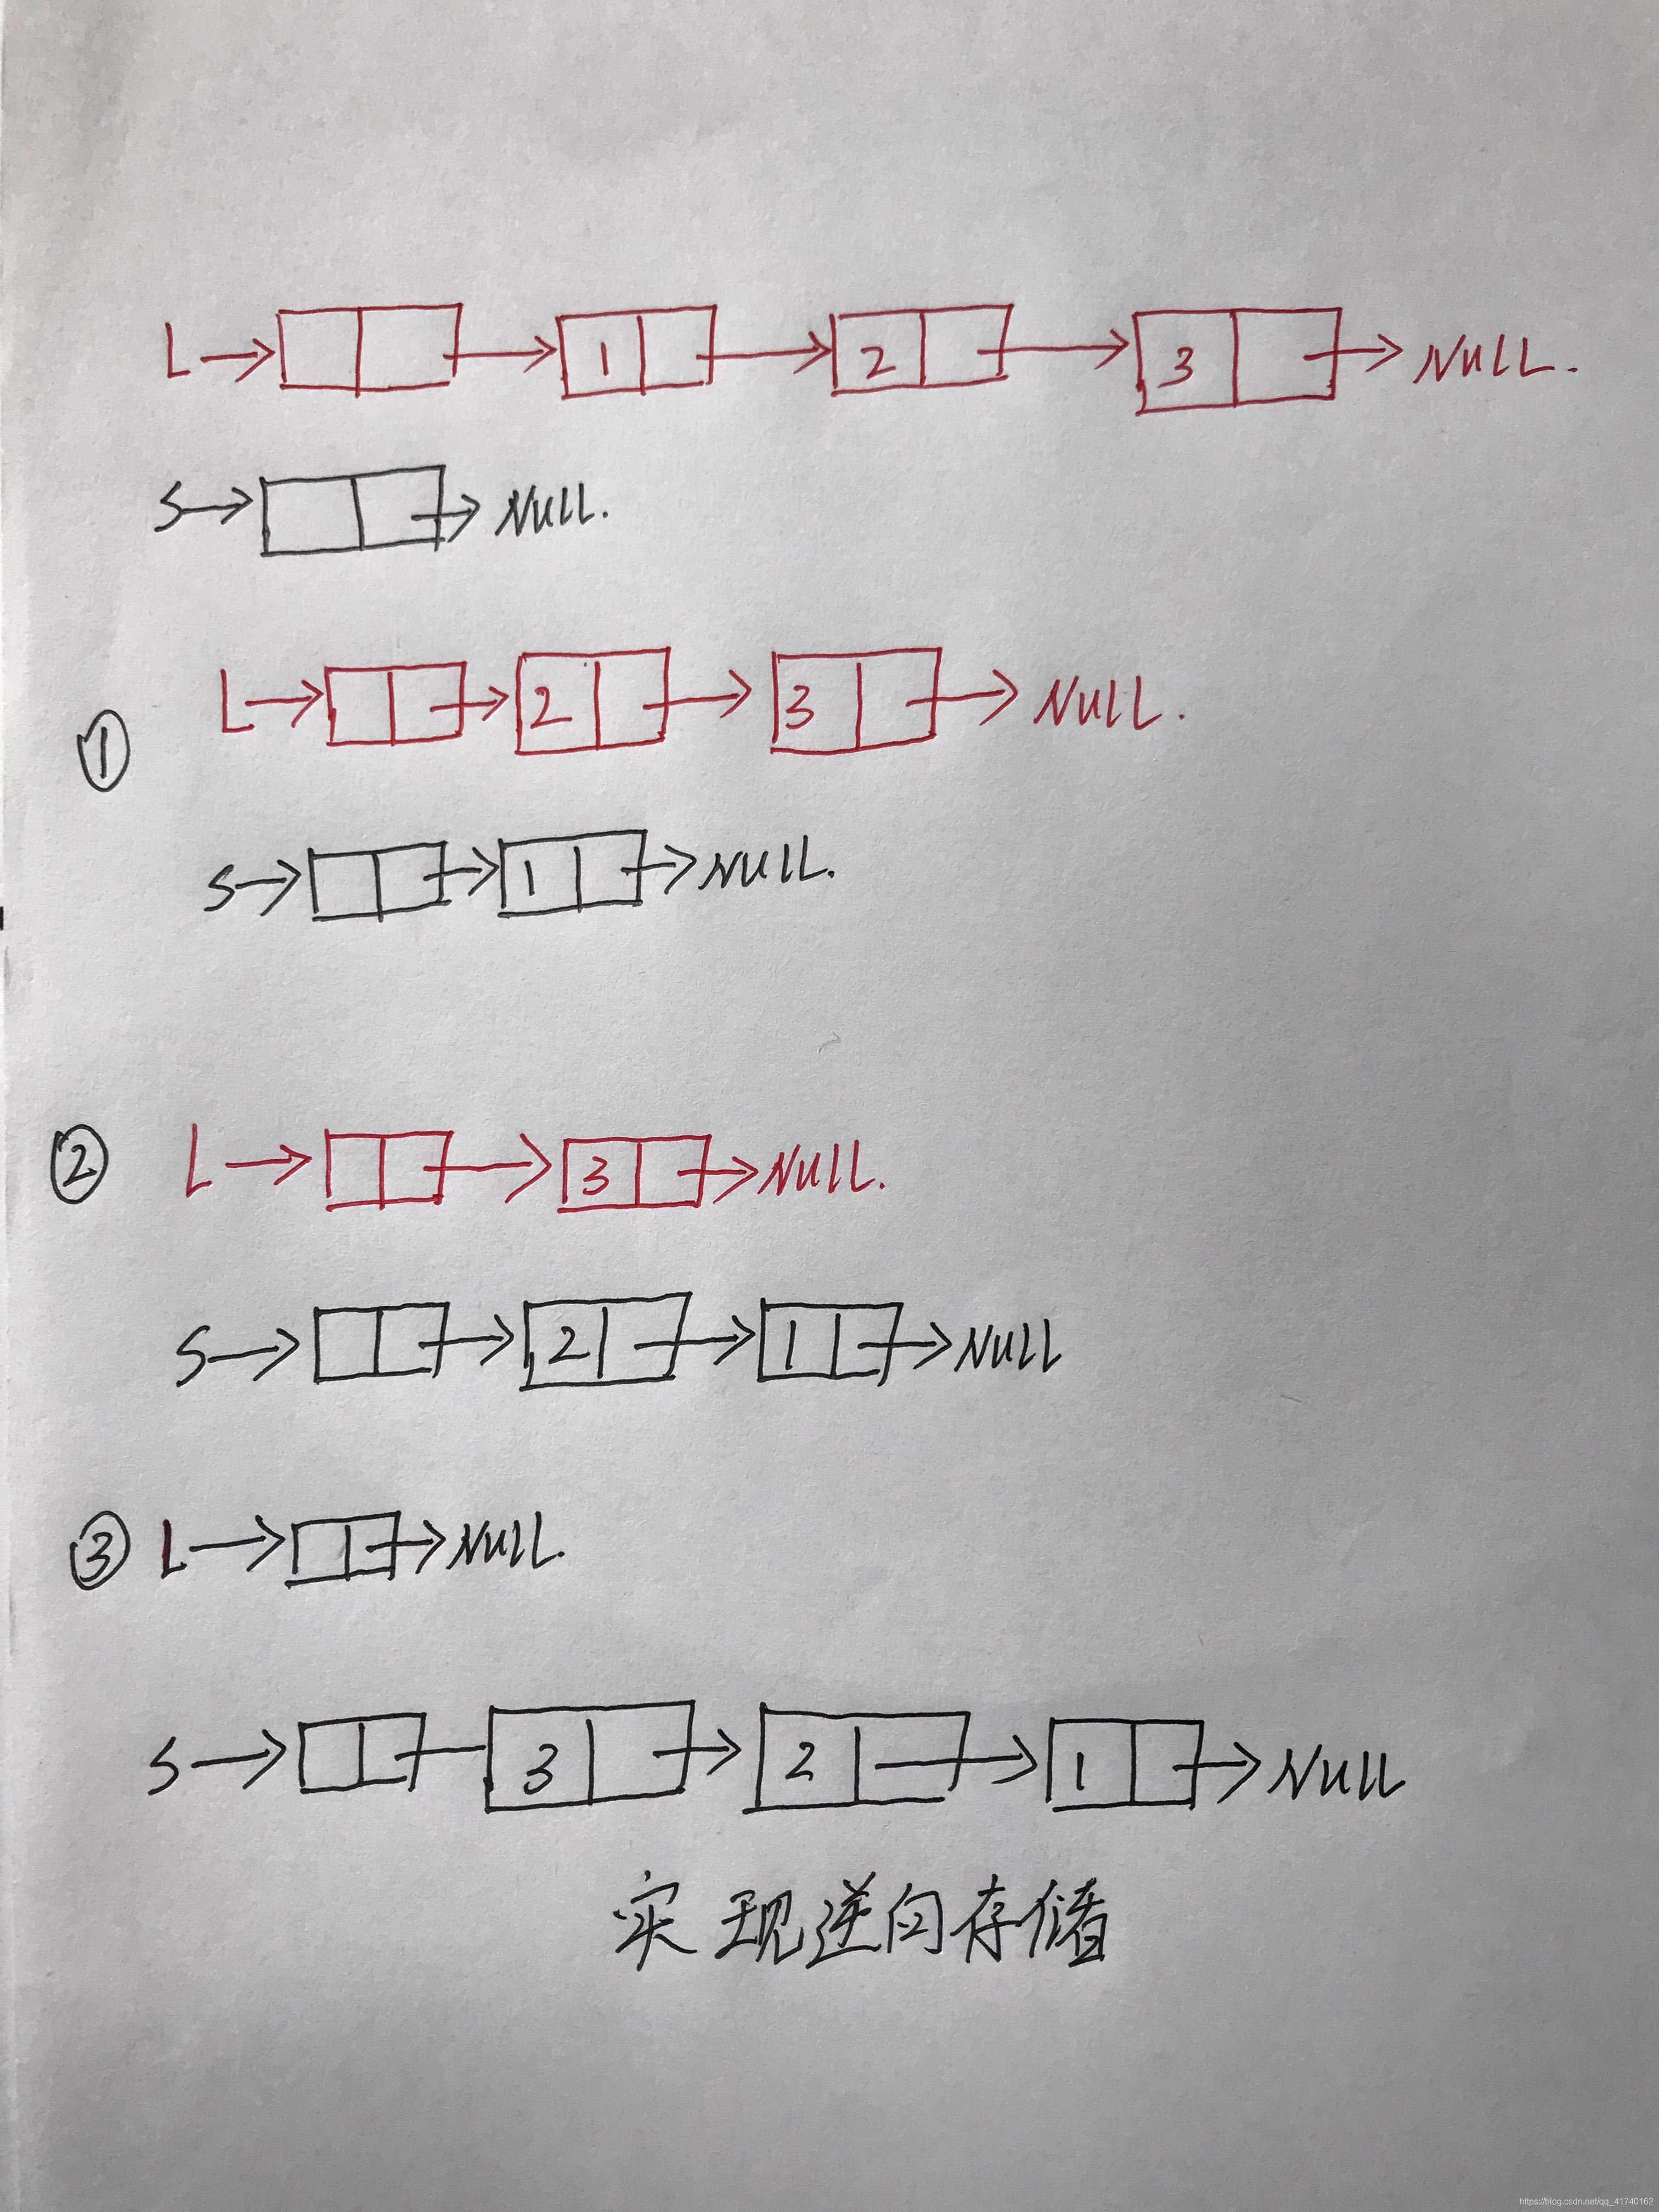 L 1 2 3 NULL.
S NULL.
① L 2 3 NULL.
S 1 NULL.
② L 3 NULL.
S 2 1 NULL
③ L NULL.
S 3 2 1 NULL
实现逆向存储
https://blog.csdn.net/qq_41740162